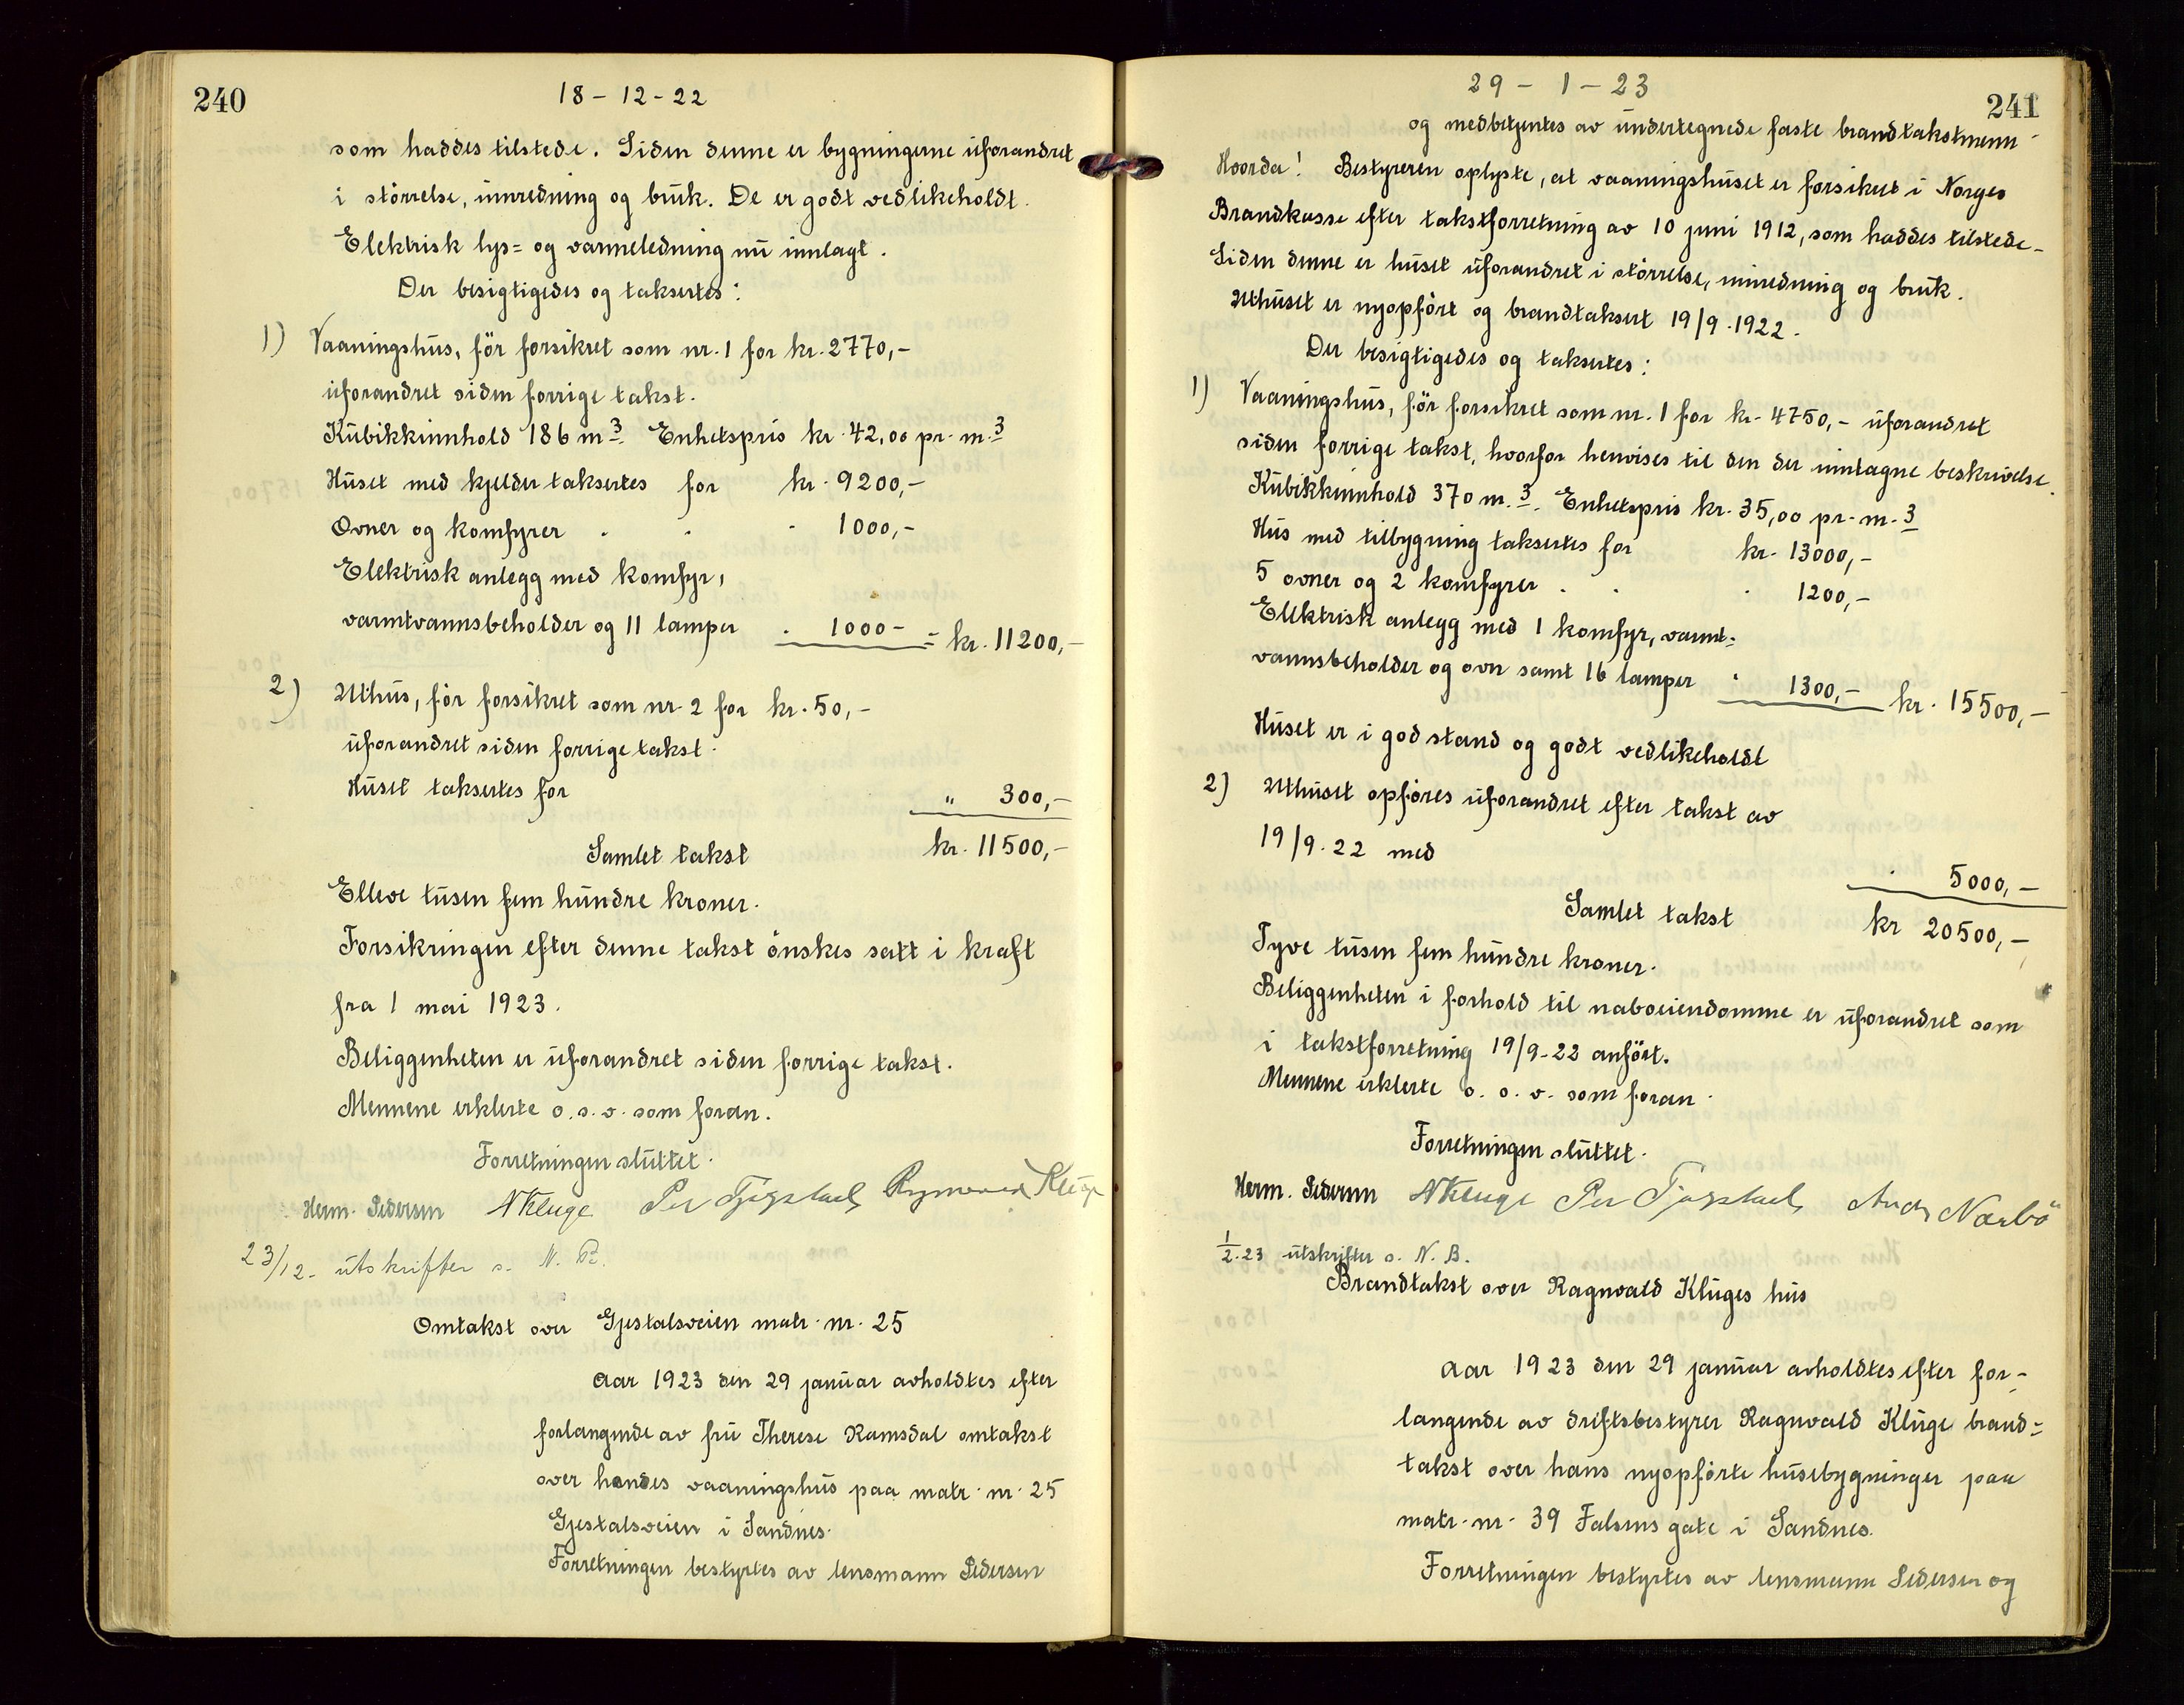 240
18-12-22
som haddes tilstede. Siden denne er bygningerne uforandret
i större­lse, innredning og bruk. De er godt vedlikeholdt.
Elektrisk lys= og varmeledning nu innlagt.
Der besigtigedes og taksertes:
1) Vaaningshus, för forsikret som nr. 1 for kr. 2770,-
uforandret siden forrige takst.
Kubikkinnhold 186 m3. Enhetspris kr. 42,00 pr. m.3
Huset med kjelder taksertes for kr. 9200,-
Ovner og komfyrer . . . 1000,-
Elektrisk anlegg med komfyr,
varmtvannsbeholder og 11 lamper . 1000- = kr. 11200,-
2) Uthus, för forsikret som nr. 2 for kr. 50,-
uforandret siden forrige takst.
Huset taksertes for " 300,-
Samlet takst kr. 11500,-
Elleve tusen fem hundre kroner.
Forsikringen efter denne takst önskes satt i kraft
fra 1 mai 1923.
Beliggenheten er uforandret siden forrige takst.
Mennene erklerte o.s.v. som foran.
Forretningen sluttet.
Herm. Pedersen NKluge Per Tjøgstad Kluge
23/12- utskrifter s. N. B.
Omtakst over Gjestalsveien matr. nr. 25
Aar 1923 den 29 januar avholdtes efter
forlangende av fru Therese Ramsdal omtakst
over hendes vaaningshus paa matr. nr. 25
Gjestalsveien i Sandnes.
Forretningen bestyrtes av lensmann Pedersen
29-1-23
241
og medbetjentes av undertegnede faste brandtakstmenn
Hvorda! Bestyreren oplyste, at vaaningshuset er forsikret i Norges
Brandkasse efter takstforretning av 10 juni 1912, som haddes tilstede-
Siden denne er huset uforandret i störrelse, innredning og bruk.
Uthuset er nyopfört og brandtaksert 19/9.1922.
Der besigtigedes og taksertes:
1) Vaaningshus, för forsikret som nr. 1 for kr. 4750,- uforandret
siden forrige takst, hvorfor henvises til den der inntagne beskrivelse.
Kubikkinnhold 370 m.3. Enhetspris kr. 35,00 pr. m.3
Hus med tilbygning taksertes for kr. 13000,-
5 ovner og 2 komfyrer . . . 1200,-
Elektrisk anlegg med 1 komfyr, varmt=
vannsbeholder og ovn samt 16 lamper . 1300,- kr. 15500,-
Huset er i god stand og godt vedlikeholdt
2) Uthuset opföres uforandret efter takst av
19/9.22 med . 5000,-
Samlet takst kr 20500,-
Tyve tusen fem hundre kroner.
Beliggenheten i forhold til naboeiendomme er uforandret som
i takstforretning 19/9-22 anfört.
Mennene erklerte o. s. v. som foran.
Forretningen sluttet.
Herm. Pedersen NKluge Per Tjøgstad Nærbö
1/2.23 utskrifter s. N. B.
Brandtakst over Ragnvald Kluges hus
Aar 1923 den 29 januar avholdtes efter for-
langende av driftsbestyrer Ragnvald Kluge brand=
takst over hans nyopförte husebygninger paa
matr. nr. 39 Falsens gate i Sandnes.
Forretningen bestyrtes av lensmann Pedersen og